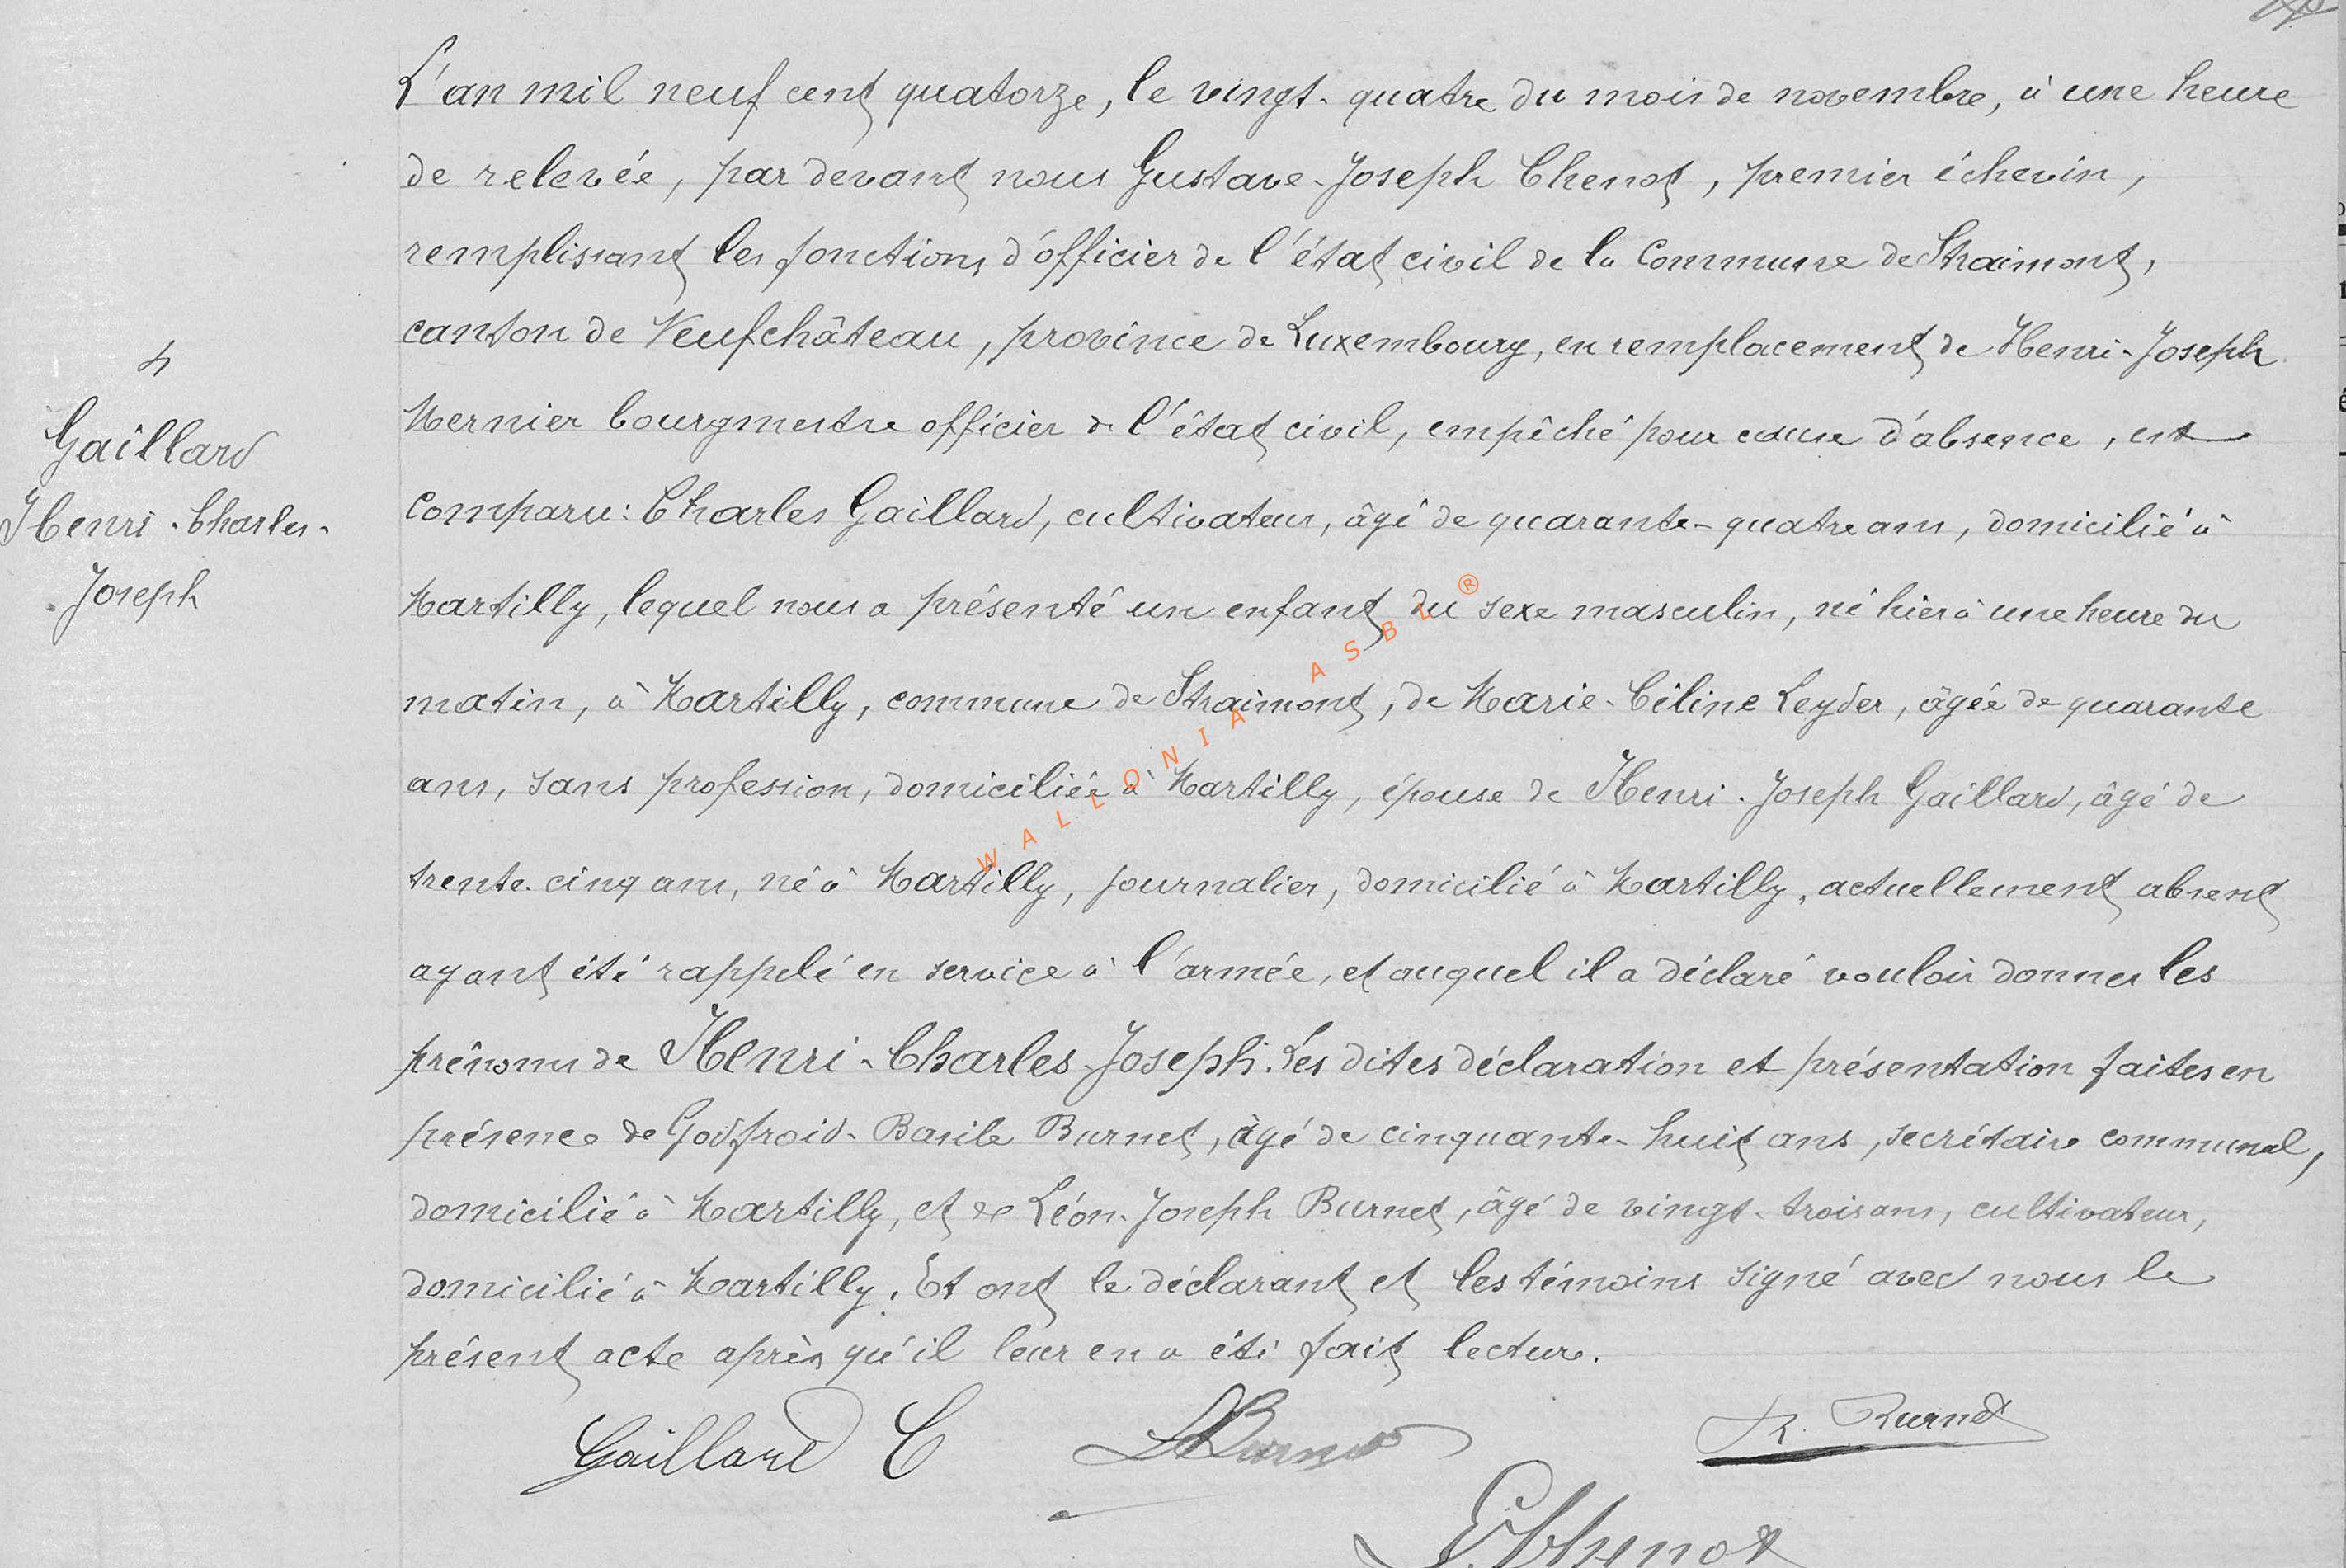 L'an mil neuf cent quatorze, le vingt-quatre du mois de novembre, à une heure
de relevée, par devant nous Gustave-Joseph Chenot, premier échevin,
remplissant les fonctions d'officier de l'état civil de la Commune de Straimont,
canton de Neufchâteau, province de Luxembourg, en remplacement de Henri-Joseph
Mernier bourgmestre officier de l'état civil, empêché pour cause d'absence, est
4
Gaillard
Henri-Charles-
Joseph
comparu: Charles Gaillard, cultivateur, âgé de quarante-quatre ans, domicilié à
Martilly, lequel nous a présenté un enfant du sexe masculin, né hier à une heure du
matin, à Martilly, commune de Straimont, de Marie-Céline Leyder, âgée de quarante
ans, sans profession, domiciliée à Martilly, épouse de Henri-Joseph Gaillard, âgé de
trente-cinq ans, né à Martilly, journalier, domicilié à Martilly, actuellement absent
ayant été rappelé en service à l'armée, et auquel il a déclaré vouloir donner les
prénoms de Henri-Charles-Joseph. Les dites déclaration et présentation faites en
présence de Godfroid-Basile Burnet, âgé de cinquante-huit ans, secrétaire communal,
domicilié à Martilly, et de Léon-Joseph Burnet, âgé de vingt-trois ans, cultivateur,
domicilié à Martilly. Et ont le déclarant et les témoins signé avec nous le
présent acte après qu'il leur en a été fait lecture.
Gaillard C LBurnet R. Burnet
G. Chenot
WALLONIA ASBL ®